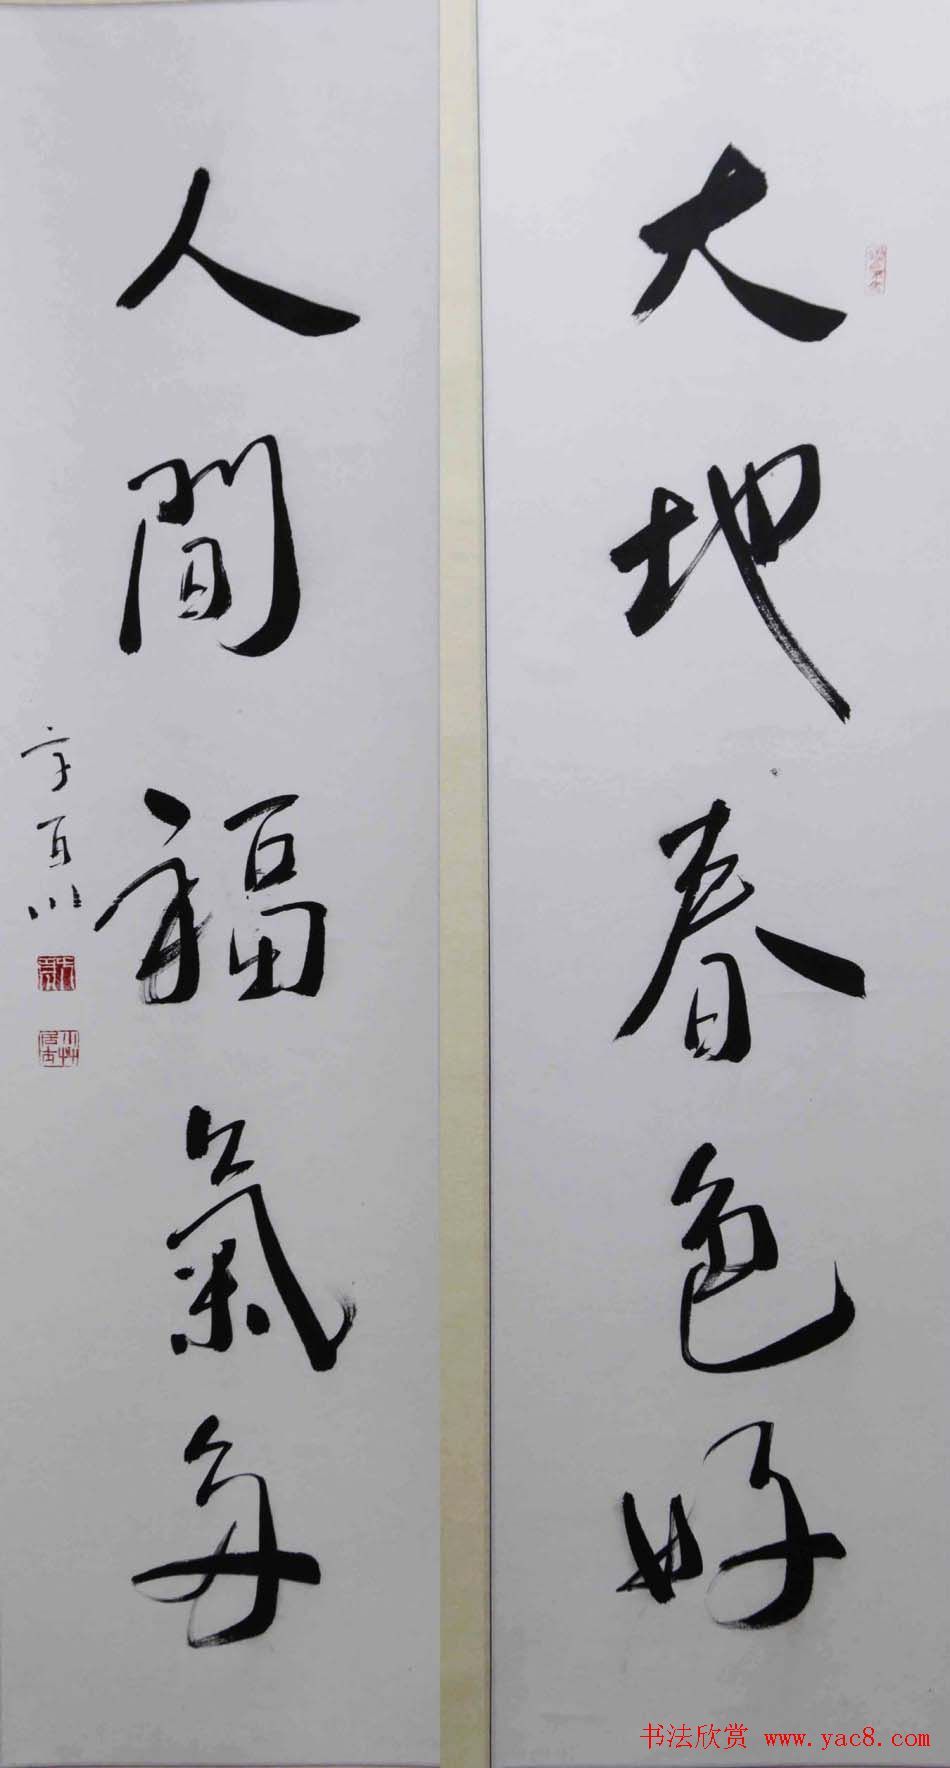 大地春色好
人間福氣多
书法欣赏 www.yac8.com